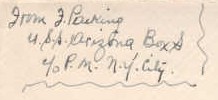 From F. Parking
U.S.S. Arizona Box S
c/o P.M. N.Y. City.